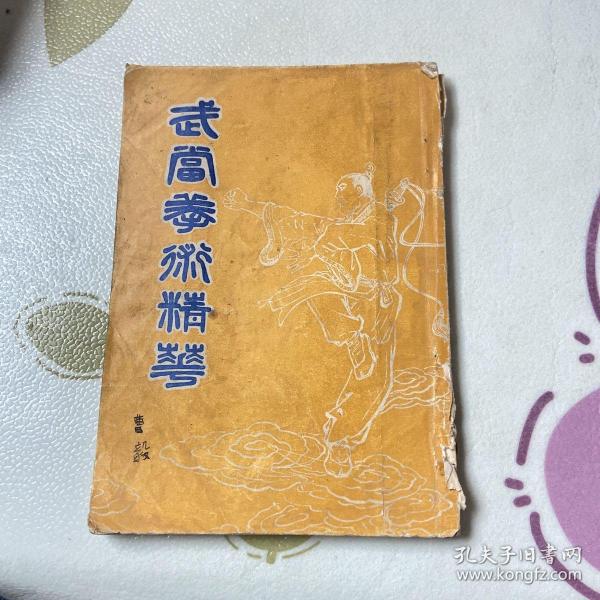 武當拳術精華
曹毅
孔夫子旧書网
www.kongfz.com